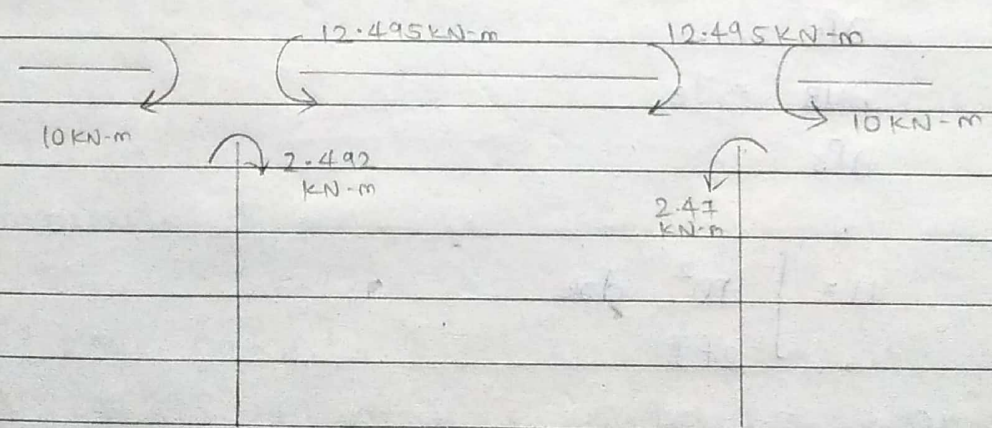 12.495KN-m 12.495KN-m
10KN-m
10KN-m
2.492
KN-m
2.47
KN-m